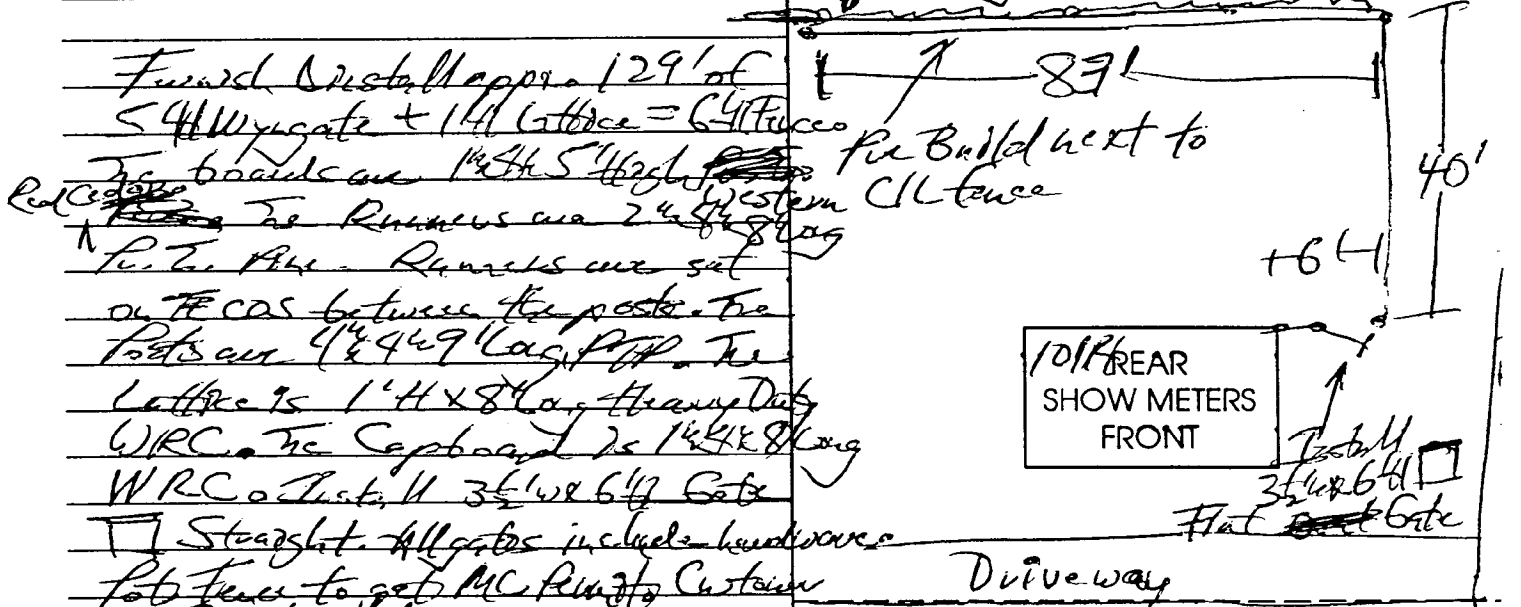 Furnish & install appr. 129' of
5'H Wyngate + 1'H Lattice = 6'H Fence
The boards are 1"x4"x5' High
Western
Red Cedar The Runners are 2"x4"x8' Long
P.T. Pine. Runners are set
on TECOS between the posts. The
Posts are 4"x4"x9' Long PTP. The
Lattice is 1'H x 8' Long Heavy Duty
WRC. The Capboard is 1"x4"x8' Long
WRC. Install 3½'w x 6'H Gate
Straight. All gates include hardware.
Fence to get MC Permit. Customer
83'
Pre Build next to
C/L fence
40'
+6'H
REAR
SHOW METERS
FRONT
Install
3½'w x 6'H
Flat Gate
Driveway